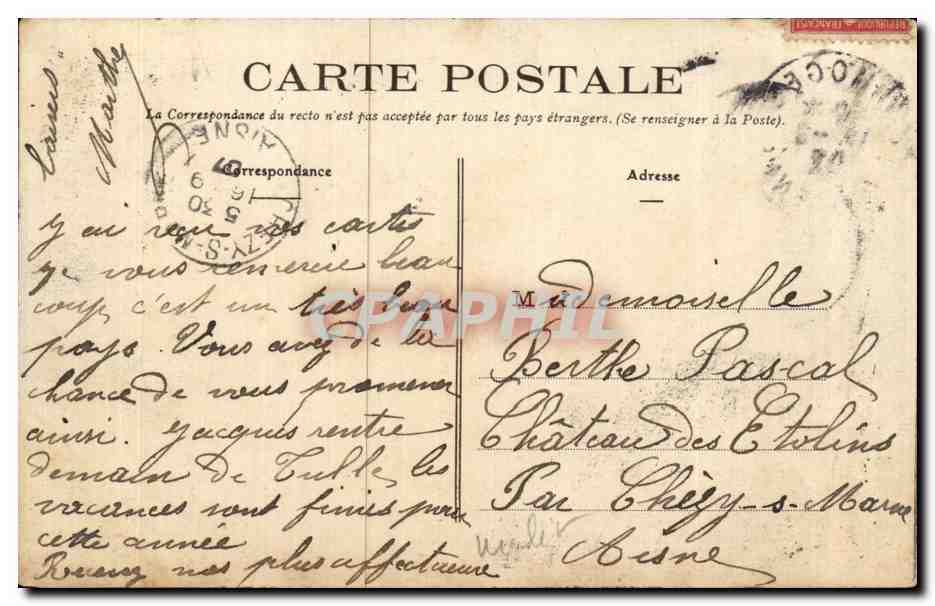 CARTE POSTALE
La Correspondance du recto n'est pas acceptée par tous les pays étrangers. (Se renseigner à la Poste).
Correspondance
j'ai reçu vos cartes
je vous remercie beau
coup c'est un très beau
pays. Vous avez de la
chance de vous promener
ainsi. Jacques rentre
demain de Tulle, les
vacances sont finies pour
cette année
nos plus affectueux
baisers
Marthe
Adresse
Mademoiselle
Berthe Pascal
Château des Etolins
Par Chézy-s-Marne
Aisne
REPUBLIQUE FRANÇAISE
AISNE
16
5 30
CPAPHIL